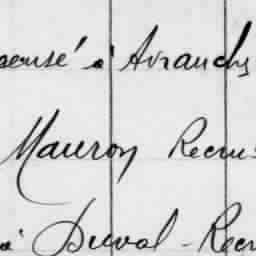 pensé à Avranches
Mauron Recru
à Duval - Recr